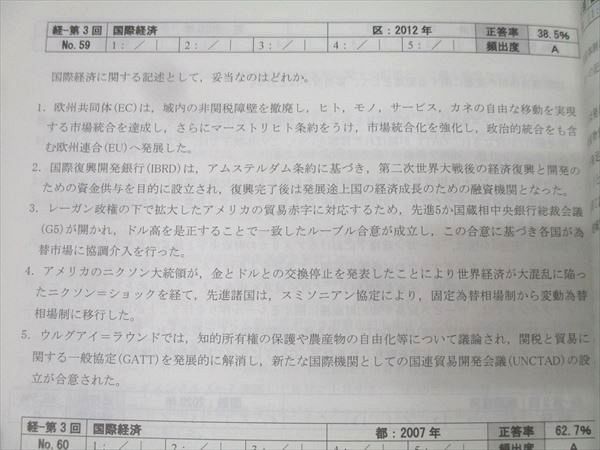 経-第3回 国際経済 区:2012年 正答率 38.5%
No.59 1: / | 2: / | 3: / | 4: / | 5: / | 頻出度 A
国際経済に関する記述として，妥当なのはどれか。
1. 欧州共同体(EC)は，域内の非関税障壁を撤廃し，ヒト，モノ，サービス，カネの自由な移動を実現
する市場統合を達成し，さらにマーストリヒト条約をうけ，市場統合化を強化し，政治的統合をも含
む欧州連合(EU)へ発展した。
2. 国際復興開発銀行(IBRD)は，アムステルダム条約に基づき，第二次世界大戦後の経済復興と開発の
ための資金供与を目的に設立され，復興完了後は発展途上国の経済成長のための融資機関となった。
3. レーガン政権の下で拡大したアメリカの貿易赤字に対応するため，先進5か国蔵相中央銀行総裁会議
(G5)が開かれ，ドル高を是正することで一致したルーブル合意が成立し，この合意に基づき各国が為
替市場に協調介入を行った。
4. アメリカのニクソン大統領が，金とドルとの交換停止を発表したことにより世界経済が大混乱に陥っ
たニクソン=ショックを経て，先進諸国は，スミソニアン協定により，固定為替相場制から変動為替
相場制に移行した。
5. ウルグアイ=ラウンドでは，知的所有権の保護や農産物の自由化等について議論され，関税と貿易に
関する一般協定(GATT)を発展的に解消し，新たな国際機関としての国連貿易開発会議(UNCTAD)の設
立が合意された。
経-第3回 国際経済 都:2007年 正答率 62.7%
No.60 1: / | 2: / | 3: / | 4: / | 5: / | 頻出度 A